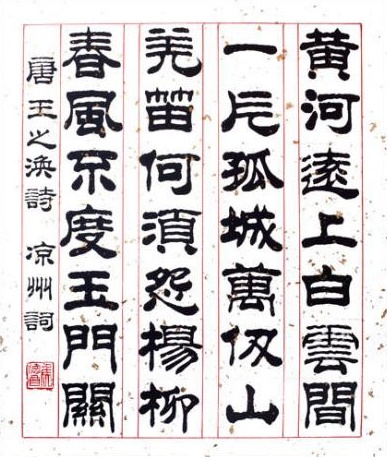 黄河遠上白雲間
一片孤城萬仞山
羌笛何須怨楊柳
春風不度玉門關
唐王之渙詩 凉州詞